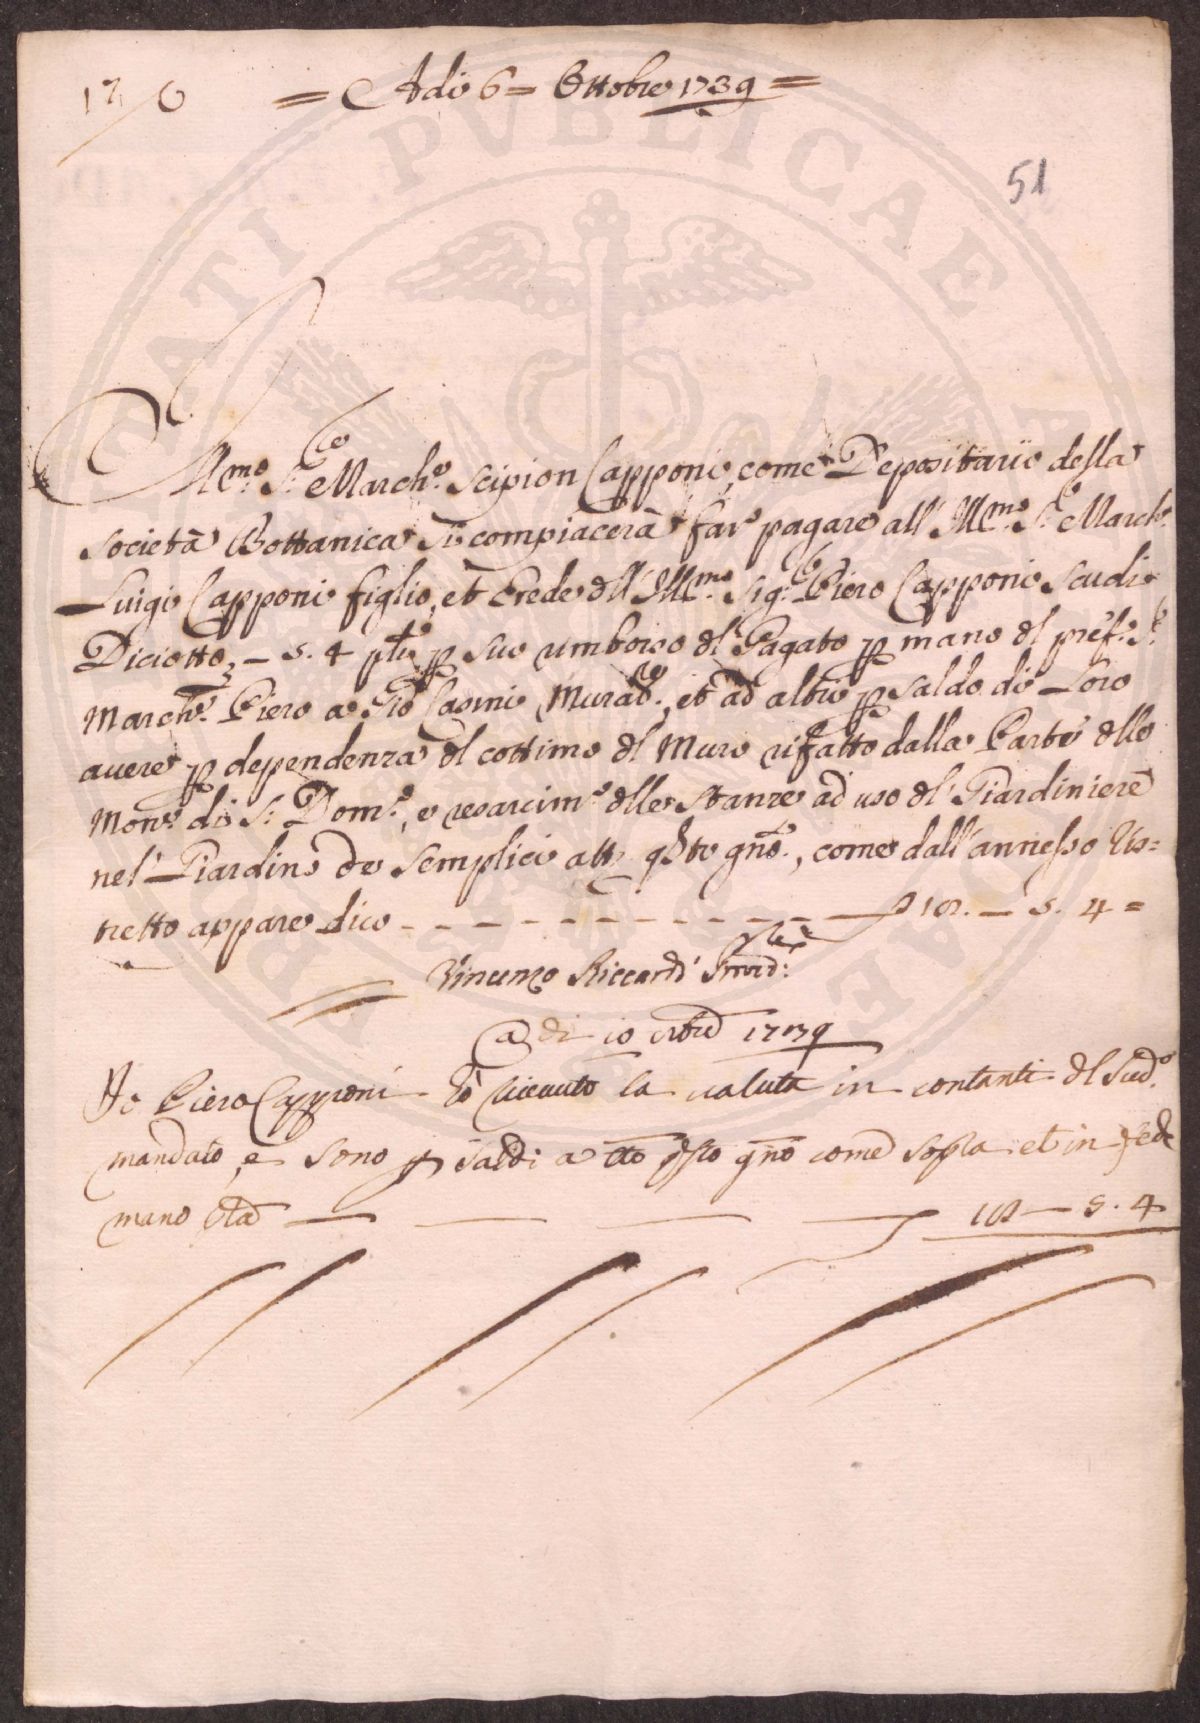 = Adi 6 = Ottobre 1739 =
51
Ill.mo S.r March.e Scipion Capponi, come Depositario della
Società Bottanica si compiacerà far pagare all' Ill.mo S.r March.e
Luigi Capponi figlio, et Erede dll' Ill.mo Sig.r Piero Capponi Scudi
Diciotto, — s. 4 p suo rimborso dl Pagato p mano dl S.r
March.e Piero a Gio Casini Murad.e, et ad altri p saldo di Loro
avere p dependenza dl cottimo dl Muro rifatto dalla Parte dlle
Mon.e di S. Dom.o, e resarcim.o dlle Stanze ad uso dl Giardiniere
nel Giardino de Semplici qsto gno., come dall' annesso Ris=
tretto appare dico - - - - - - - - - - 18. — s. 4 =
Vincenzo Riccardi
A di 10 8bre 1739
Io Piero Capponi ò riceuuto la valuta in contanti dl sud.o
mandato, e sono p saldi a tto qsto gno come sopra et in fede
mano pp.a — — — — 18 — s. 4